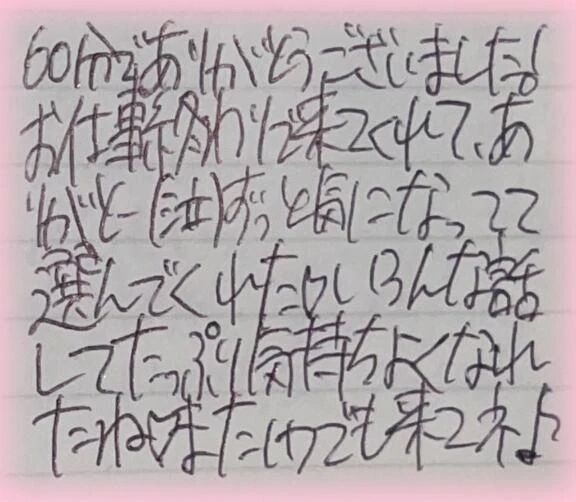 60分でありがとうございました!
お仕事終わりで来てくれて、あ
りがとー(泣)ずっと気になってて
選んでくれたりいろんな話
してたっぷり気持ちよくなれ
たねまたいつでも来てネ♪